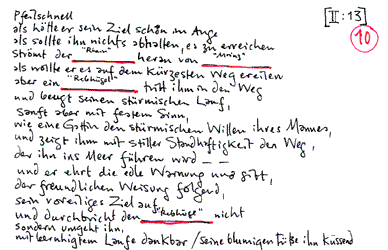 Pfeilschnell
als hätte er sein Ziel schon im Auge
als sollte ihn nichts abhalten, es zu erreichen
strömt der "Rhein" heran von "Mainz"
als wollte er es auf dem kürzesten Weg ereilen
aber ein "Rebhügel" tritt ihm in den Weg
und beugt seinen stürmischen Lauf,
sanft aber mit festem Sinn,
wie eine Gattin den stürmischen Willen ihres Mannes,
und zeigt ihm mit stiller Standhaftigkeit den Weg,
der ihn ins Meer führen wird – –
und er ehrt die edle Warnung und gibt,
der freundlichen Weisung folgend,
sein voreiliges Ziel auf
und durchbricht den "Rebhügel" nicht
sondern umgeht ihn,
mit beruhigtem Laufe dankbar / seine blumigen Füße ihm küssend
[II:13]
10